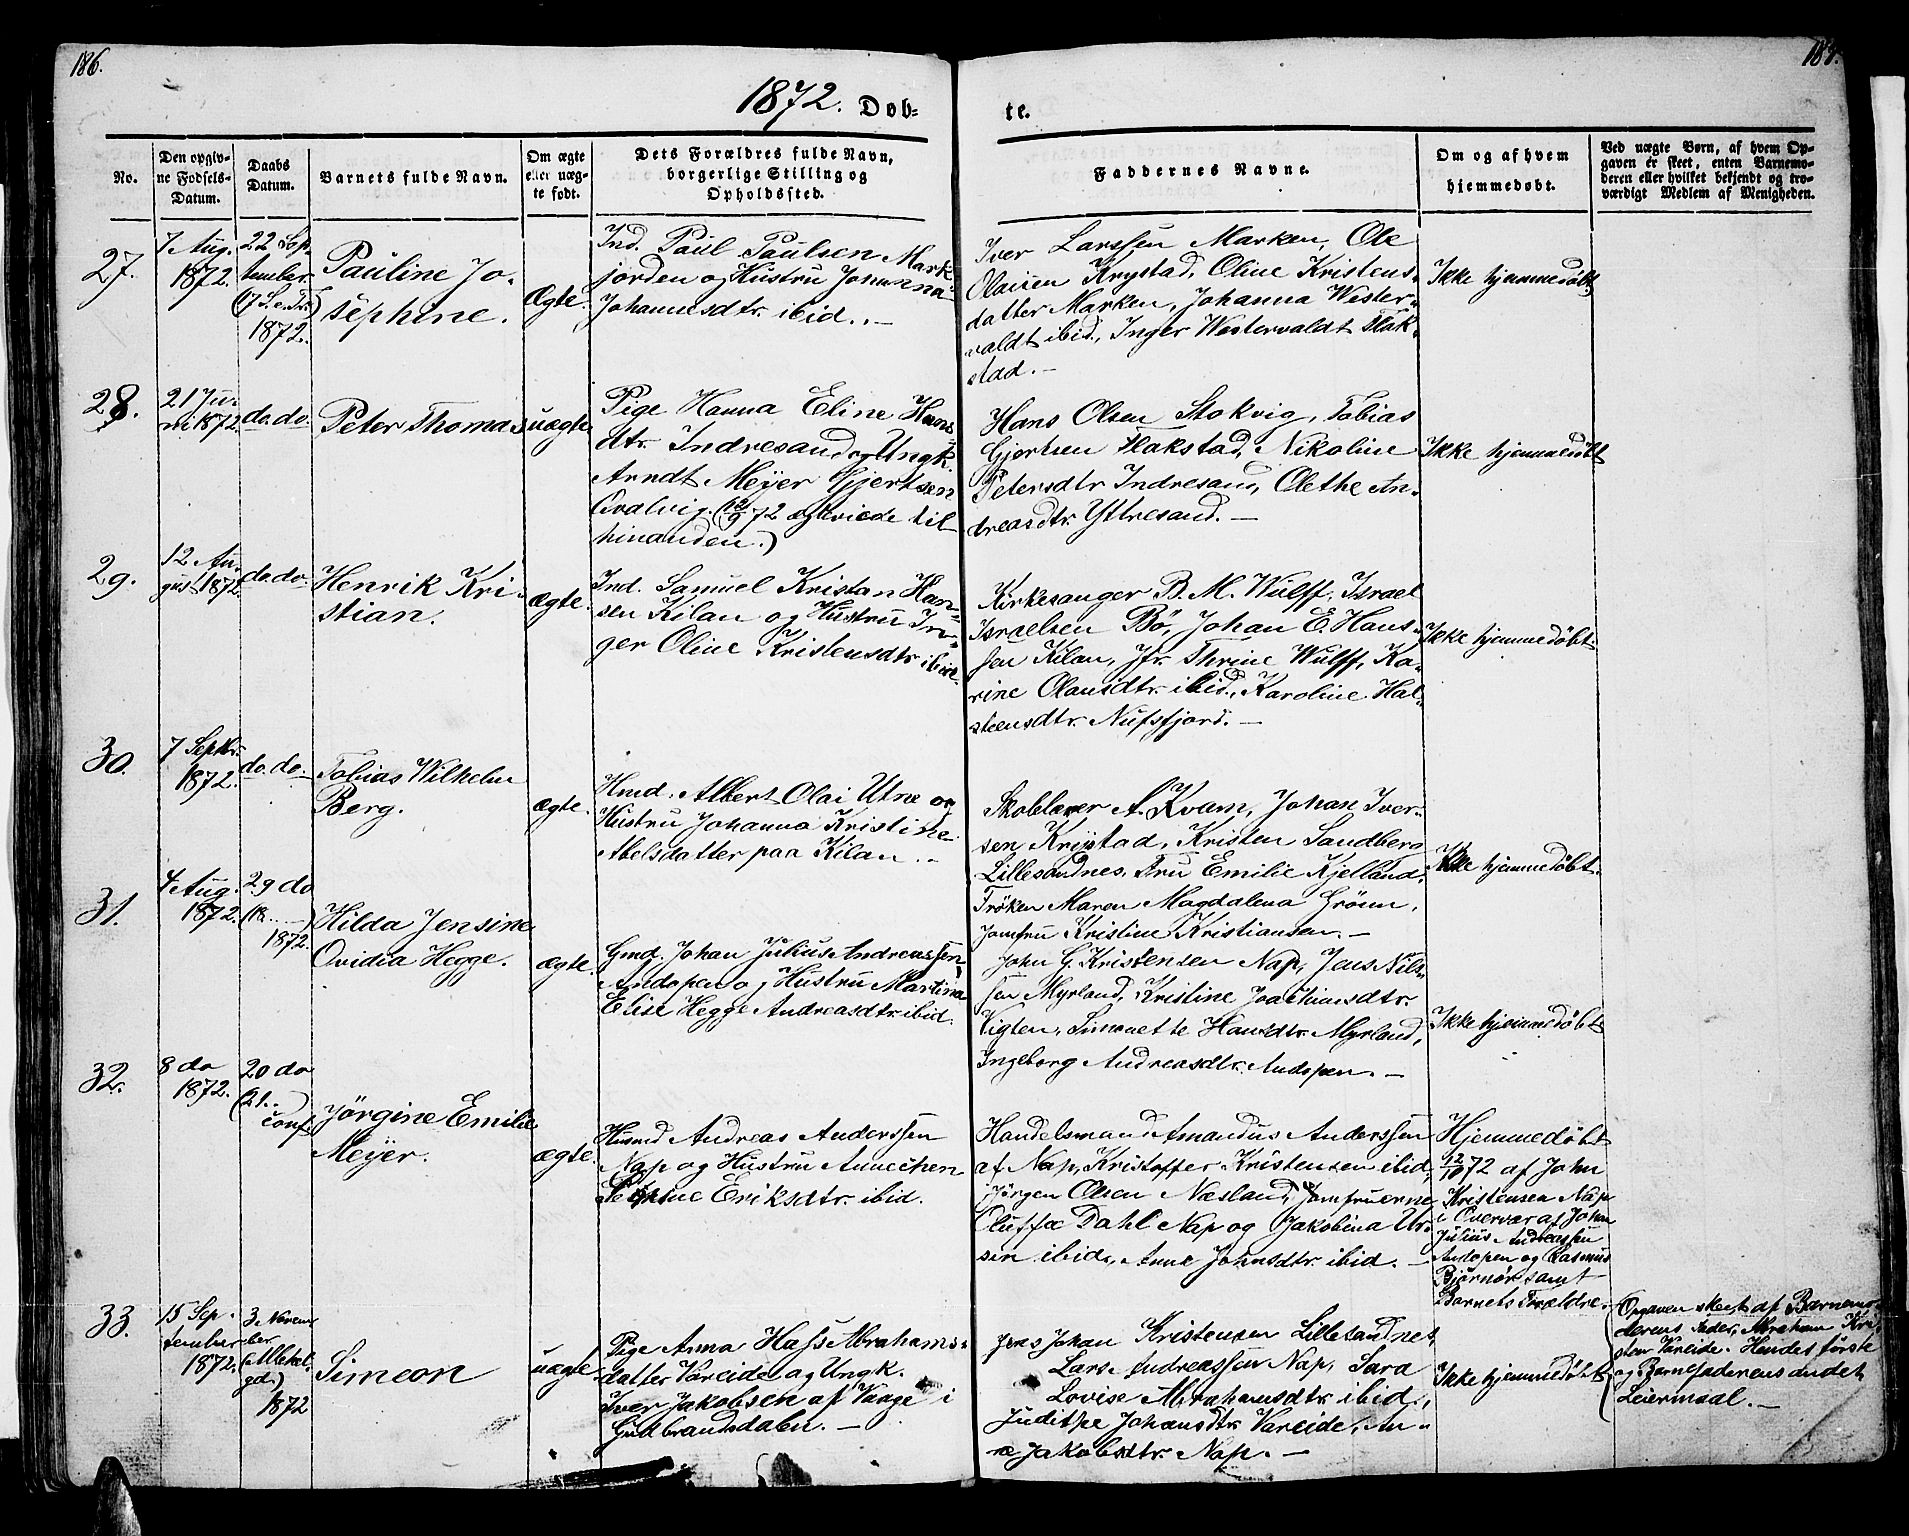 186.
187.
1872. Döb-
te.
No.
Den opgiv-
ne Fødsels-
Datum.
Daabs
Datum.
Barnets fulde Navn.
Om ægte
eller uæg-
te født.
Dets Forældres fulde Navn,
borgerlige Stilling og
Opholdssted.
Faddernes Navne.
Om og af hvem
hjemmedøbt.
Ved uægte Børn, af hvem Op-
gaven er skeet, enten Barnemo-
deren eller hvilket bekjendt og tro-
værdigt Medlem af Menigheden.
27.
7 Aug.
1872.
22 Sep-
tember
(17 S. e. Tr.)
1872.
Pauline Jo-
sephine.
Ægte.
Ind. Paul Paulsen Mark-
jorden og Hustru Johanna
Johannesdtr. ibid. –
Iver Larssen Marken, Ole
Olaisen Krystad, Oline Kristens-
datter Marken, Johanna Wester-
valdt ibid., Inger Westervaldt Flak-
stad. –
Ikke hjemmedøbt.
28.
21 Ju-
ni 1872.
do. do.
Peter Thomas
uægte
Pige Hanna Eline Hans-
dtr. Indresand og Ungk.
Arndt Meyer Gjertsen
Qvalvig. (22/9 72 ægteviede til
hinanden.)
Hans Olsen Stokvig, Tobias
Gjertsen Flakstad, Nikoline
Petersdtr Indresand, Olethe An-
dreasdtr. Yttresand. –
Ikke hjemmedöbt
29.
12 Au-
gust 1872.
do. do.
Henrik Kri-
stian.
ægte.
Ind. Samuel Kristan Han-
sen Kilan og Hustru In-
ger Oline Kristensdtr. ibid.
Kirkesanger B. M. Wulff, Israel
Israelsen Bö, Johan E. Hans-
sen Kilan, Jfr. Thrine Wulff, Ka-
rine Olausdtr. ibid., Karoline Hal-
steensdtr. Nufsfjord. –
Ikke hjemmedöbt.
30.
7 Septbr.
1872.
do. do.
Tobias Wilhelm
Berg.
ægte.
Hmd. Albert Olai Utne og
Hustru Johanna Kristine
Abelsdatter paa Kilan. –
Skolelærer A. Kvam, Johan Iver-
sen Krystad, Kristen Sandberg
Lillesandnes, Fru Emilie Kjelland,
Fröken Maren Magdalena Grönn,
Jomfru Kristine Kristiansen. –
Ikke hjemmedöbt.
31.
4 Aug.
1872.
29 do
(18. –)
1872.
Hilda Jensine
Ovidia Hegge.
ægte.
Gmd. Johan Julius Andreassen
Andopen og Hustru Martina
Elise Hegge Andreasdtr. ibid.
John G. Kristensen Nap, Jens Nils-
sen Myrland, Kristine Joachimsdtr.
Vigten, Simonette Hansdtr. Myrland,
Ingeborg Andreasdtr. Andopen. –
Ikke hjemmedöbt
32.
8 do
1872.
20 do
(21. .)
conf.
Jörgine Emilie
Meyer.
ægte.
Husmd Andreas Anderssen
Nap og Hustru Annechen
Eriksdtr. ibid.
Handelsmand Amandus Anderssen
af Nap, Kristoffer Kristensen ibid,
Jörgen Olsen Næsland, Jomfruerne
Oluffa Dahl Nap og Jakobina Ur-
sin ibid., Anne Johnsdtr. ibid. –
Hjemmedöbt
12/10 72 af John
Kristensen Nap
i Overvær af Johan
Julius Andreassen
Andopen og Rasmus
Björnör samt
Barnets Forældre.
33.
15 Sep-
tember
1872.
3 Novem-
ber
(Allehel-
gd.)
1872
Simeon
uægte
Pige Anna Hass Abrahams-
datter Vareide og Ungk.
Iver Jakobsen af Vaage i
Gudbrandsdalen. –
Jens Johan Kristensen Lillesandnes,
Lars Andreassen Nap, Sara
Lovise Abrahamsdtr. ibid.,
Judithe Johansdtr. Vareide, An-
ne Jakobsdtr. Nap. –
Ikke hjemmedöbt
Opgaven skeet af Barnemo-
derens Fader, Abraham Kri-
sten Vareide. Hendes förste
og Barnefaderens andet
Leiermaal. –